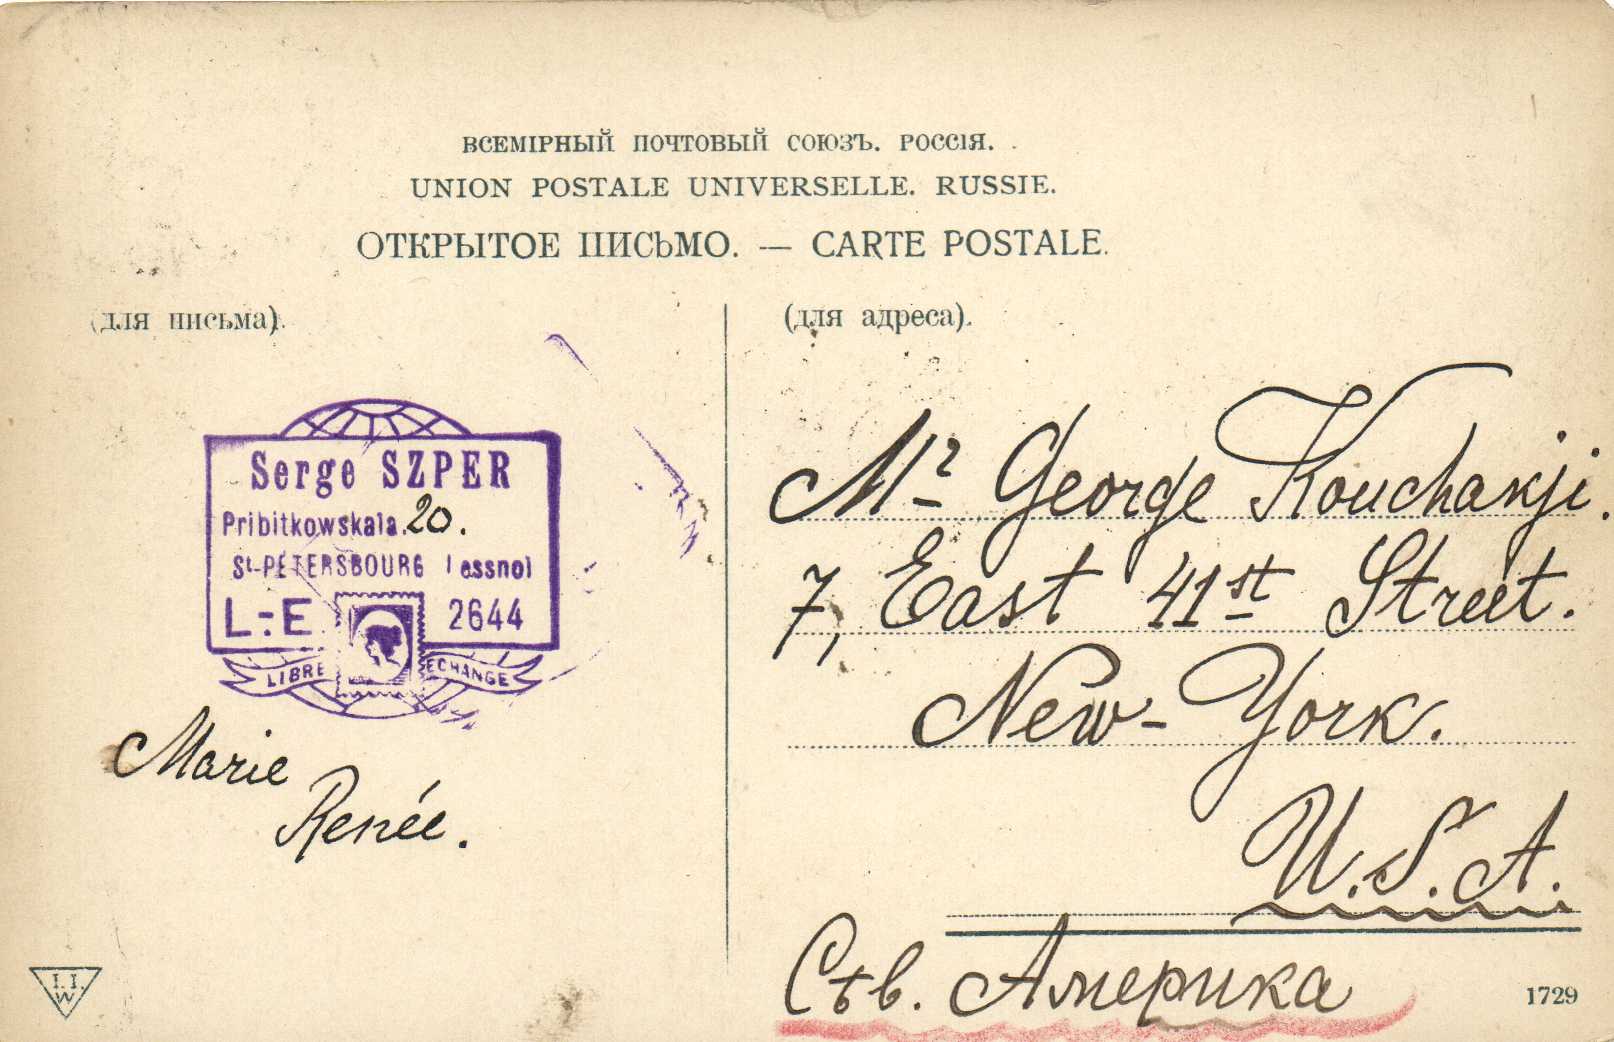 ВСЕМІРНЫЙ ПОЧТОВЫЙ СОЮЗЪ. РОССІЯ.
UNION POSTALE UNIVERSELLE. RUSSIE.
ОТКРЫТОЕ ПИСЬМО. — CARTE POSTALE.
(для письма).
Serge SZPER
Pribitkowskaia. 20.
St-PÉTERSBOURG Lessnoi
L-:E 2644
LIBRE ECHANGE
Marie
Renée.
I. I. W
(для адреса).
Mr George Kouchakji.
7, East 41st Street.
New-York.
U.S.A.
Сѣв. Америка
1729